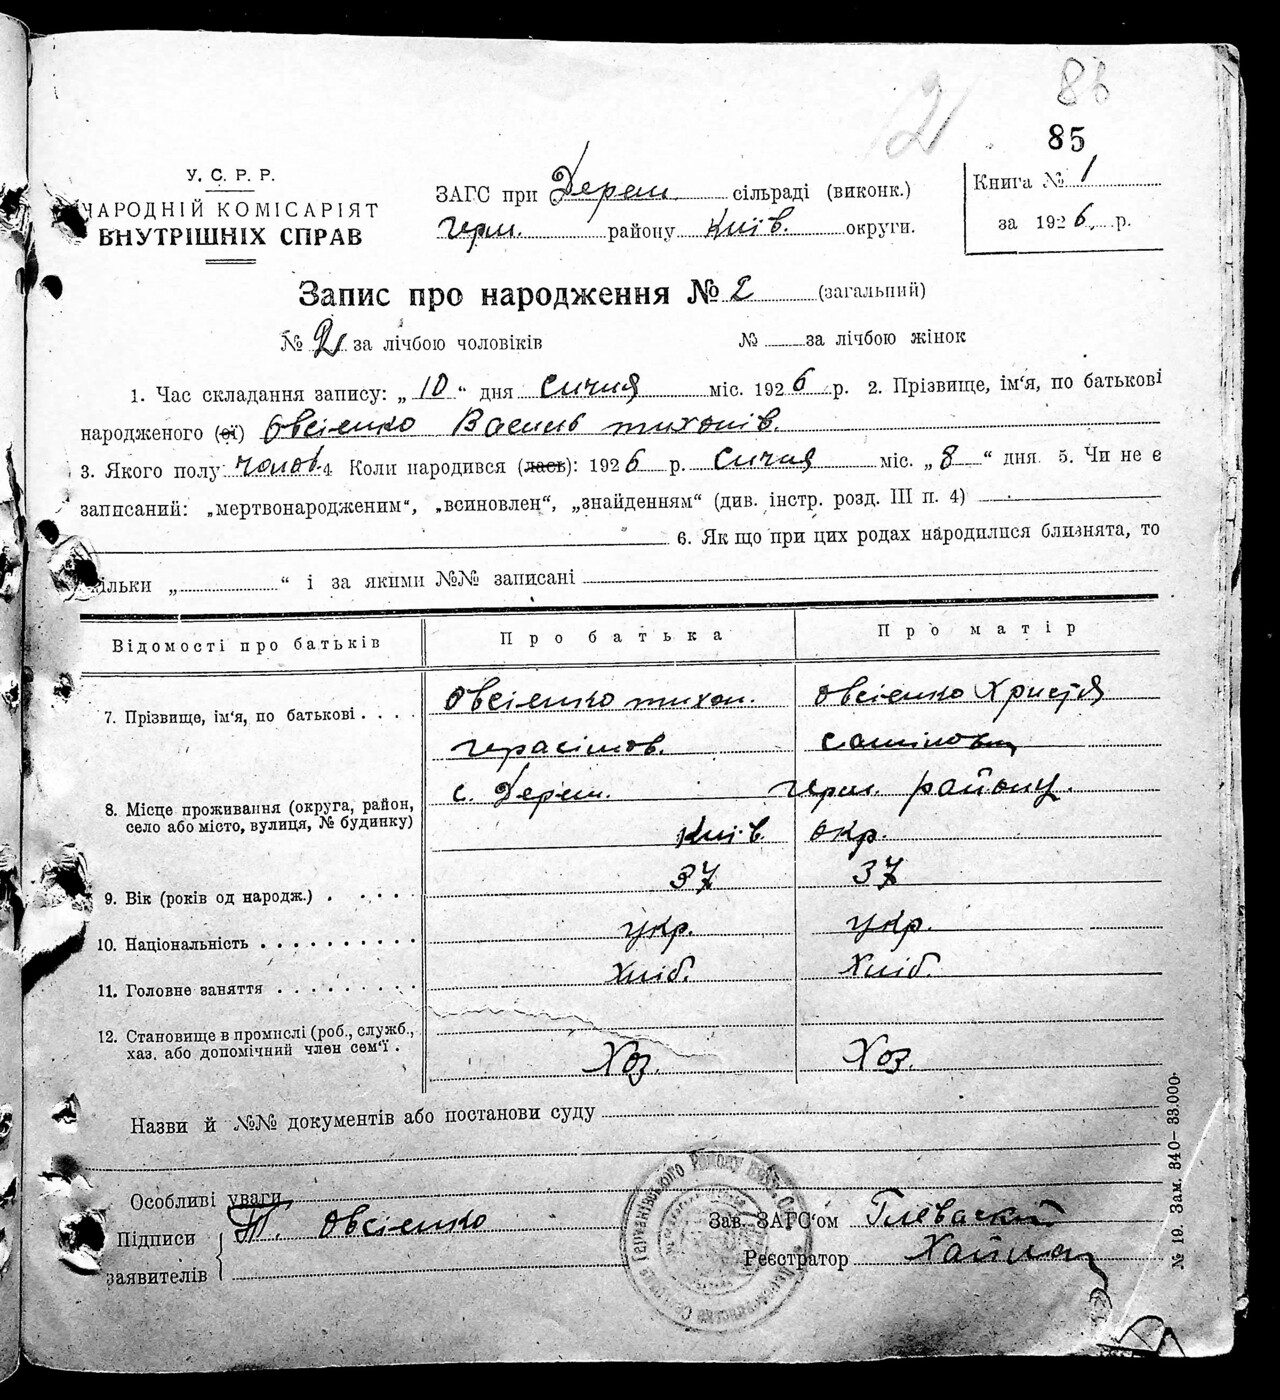 86
2
85
У. С. Р. Р.
НАРОДНІЙ КОМІСАРІЯТ
ВНУТРІШНІХ СПРАВ
ЗАГС при Дерем. сільраді (виконк.)
Герм. району Київ. округи.
Книга № 1
за 1926 р.
Запис про народження № 2 (загальний)
№ 2 за лічбою чоловіків № за лічбою жінок
1. Час складання запису: „10“ дня Січня міс. 1926 р. 2. Прізвище, ім‘я, по батькові
народженого (ої) Овсієнко Василь Тихонів.
3. Якого полу чолов. 4 Коли народився (лась): 1926 р. Січня міс. „8“ дня. 5. Чи не є
записаний: „мертвонародженим“, „всиновлен“, „знайденням“ (див. інстр. розд. III п. 4)
6. Як що при цих родах народилися близнята, то
кільки „ “ і за якими №№ записані
Відомості про батьків Про батька Про матір
7. Прізвище, ім‘я, по батькові . . . . Овсієнко Тихон. Овсієнко Христя
Герасімов.
8. Місце проживання (округа, район, с. Дерем. Герм. району.
село або місто, вулиця, № будинку) Київ. окр.
9. Вік (років од народж.) . . . . . 37 37
10. Національність . . . . . . . . . . укр. укр.
11. Головне заняття . . . . . . . . Хліб. Хліб.
12. Становище в промислі (роб., служб.,
хаз. або допомічний член сем‘ї . Хоз. Хоз.
Назви й №№ документів або постанови суду
Особливі уваги
Підписи Т. Овсієнко Зав. ЗАГС‘ом Глеваский
заявителів Реєстратор
№ 19. Зам. 340—33.000